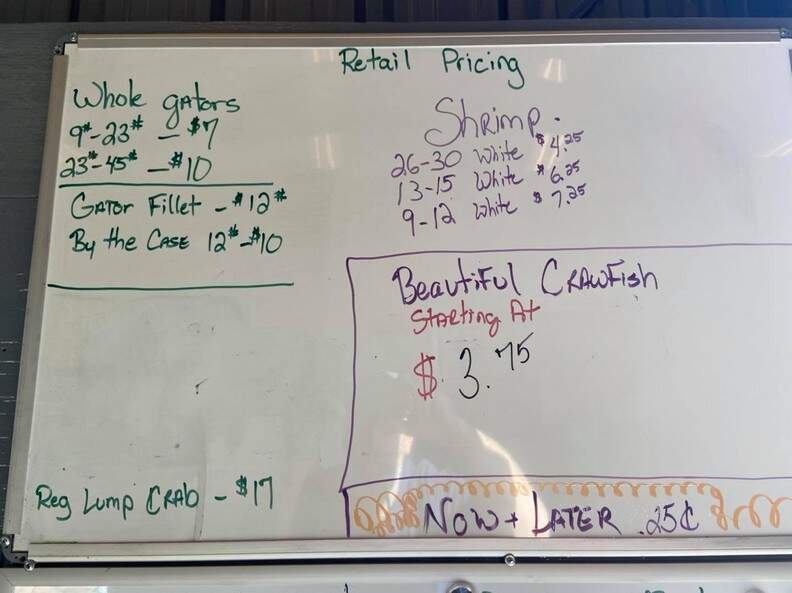 Retail Pricing
Whole gators
9# - 23# - $7
23# - 45# - $10
Gator Fillet - $12#
By the Case 12# - $10
Reg Lump Crab - $17
Shrimp.
26-30 White $4.25
13-15 White $6.25
9-12 White $7.25
Beautiful Crawfish
Starting At
$3.75
Now + Later .25¢